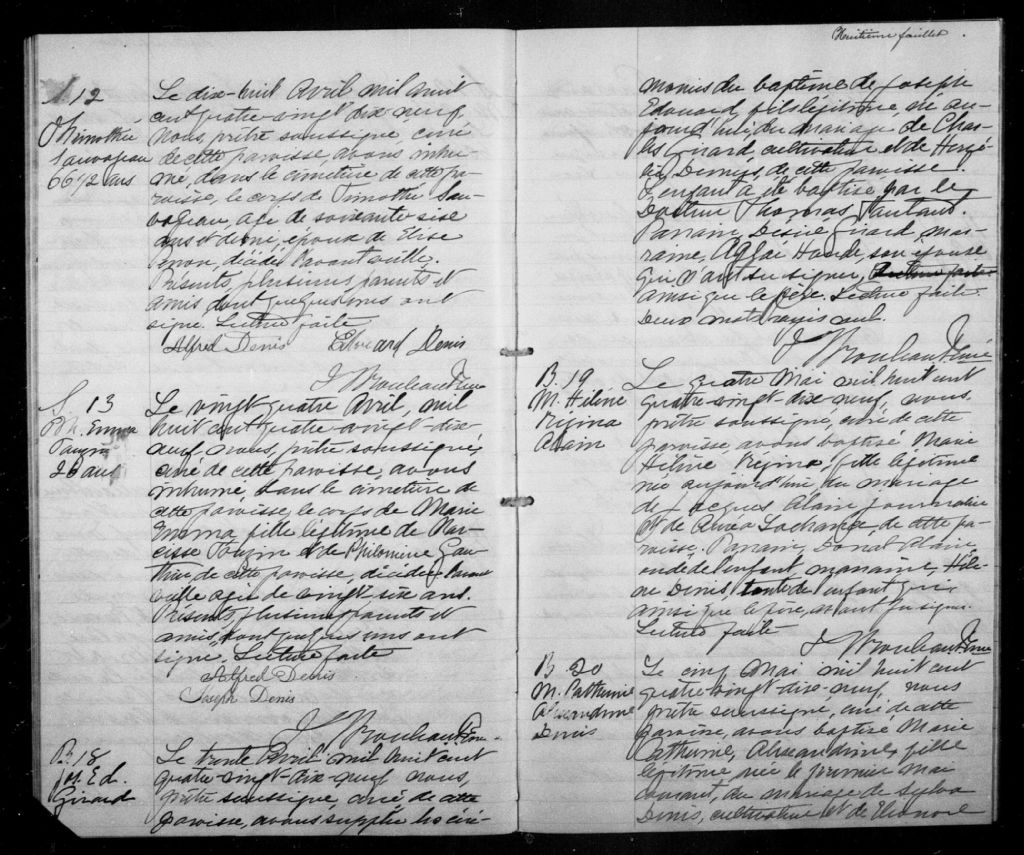 S 12
Timothé
Sauvageau
66 1/2 ans
Le dix-huit Avril mil huit
cent quatre-vingt dix neuf
nous, prêtre soussigné, curé
de cette paroisse, avons inhu-
mé, dans le cimetière de cette pa-
roisse, le corps de Timothé Sau-
vageau, age de soixante-sise
ans et demi, époux de Elise
décédé l'avant veille.
Présents, plusieurs parents et
amis dont quelques uns ont
signé. Lecture faite
Alfred Denis Edouard Denis
J Rouleau Ptre
S 13
M. Emma
26 ans
Le vingt quatre Avril, mil
huit cent quatre-vingt-dix-
neuf, nous, prêtre soussigné,
curé de cette paroisse, avons
inhumé, dans le cimetière de
cette paroisse, le corps de Marie
Emma, fille légitime de Nar-
cisse et de Philomène Gau-
thier, de cette paroisse, décédée l'avant
veille agee de vingt six ans.
Présents, plusieurs parents et
amis, dont quelques uns ont
signé. Lecture faite
Alfred Denis
Joseph Denis
J Rouleau Ptre
B. 18
Js. Ed.
Girard
Le trente Avril mil huit cent
quatre-vingt-dix-neuf nous,
prêtre soussigné, curé de cette
paroisse, avons supplée les céré-
Huitième feuillet.
monies du baptême de Joseph
Edouard, fils légitime, né au-
jourd'hui, du mariage de Char-
les Girard, cultivateur et de
Denys, de cette paroisse.
L'enfant a été baptisé par le
Docteur Thomas
Parrain, Désiré Girard, mar-
raine, Aglaé Houde, son épouse
qui n'ont su signer, Lecture faite
ainsi que le père. Lecture faite.
Deux mots rayés nul.
J Rouleau Ptre
B. 19
M. Hélène
Régina
Alain
Le quatre Mai mil huit cent
quatre-vingt-dix neuf, nous,
prêtre soussigné, curé de cette
paroisse, avons baptisé Marie
Hélène Régina, fille légitime
née aujourd'hui du mariage
de Jacques Alain journalier
et de Lachance, de cette pa-
roisse. Parrain, Donat Alain,
oncle de l'enfant marraine, Hélè-
ne Denis, tante de l'enfant qui,
ainsi que le père, n'ont su signer.
Lecture faite
J Rouleau Ptre
B 20
M. Catherine
Alexandrine
Denis
Le cinq Mai mil huit cent
quatre vingt-dix-neuf, nous
prêtre soussigné, curé de cette
paroisse, avons baptisé Marie
Catherine, Alexandrine, fille
légitime née le premier Mai
courant, du mariage de Sylva
Denis, cultivateur et de Eleonore